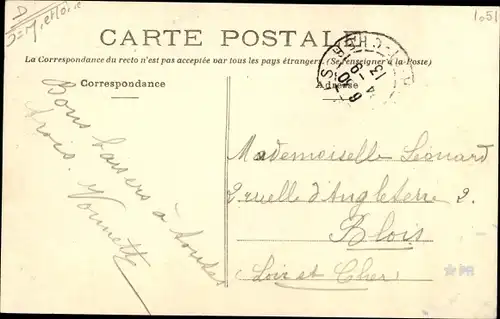 1051
D
CARTE POSTALE
La Correspondance du recto n'est pas acceptée par tous les pays étrangers. (Se renseigner à la Poste)
Correspondance
Adresse
Bons baisers à toutes
trois.
Yonnette
Mademoiselle Léonard
2 ruelle d'Angleterre 2.
Blois
Loir et Cher
PR